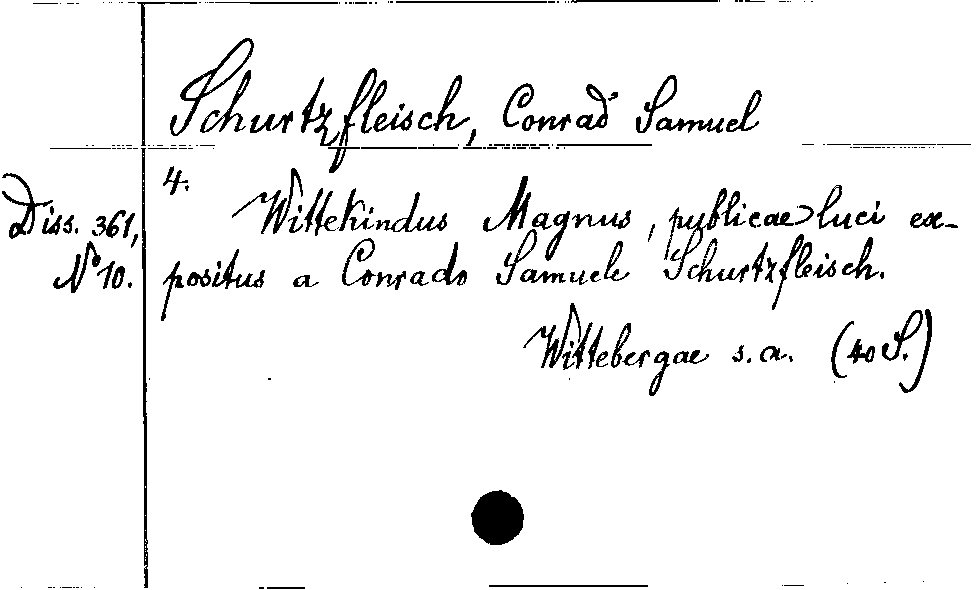 Schurtzfleisch, Conrad Samuel
4.
Diss. 361,
No 10.
Wittekindus Magnus, publicae luci ex-
positus a Conrado Samuele Schurtzfleisch.
Wittebergae s. a. (40 S.)